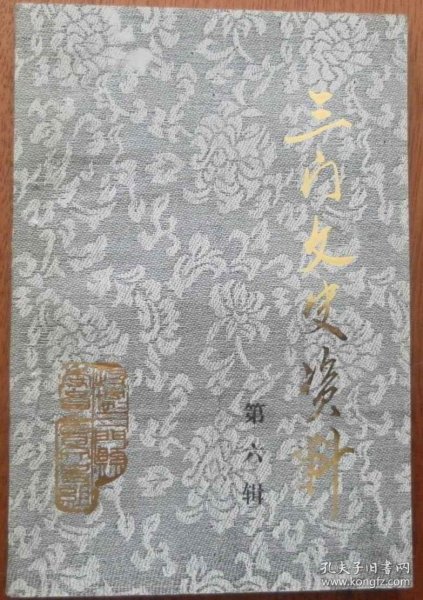 三门文史资料
第六辑
孔夫子旧书网
www.kongfz.com